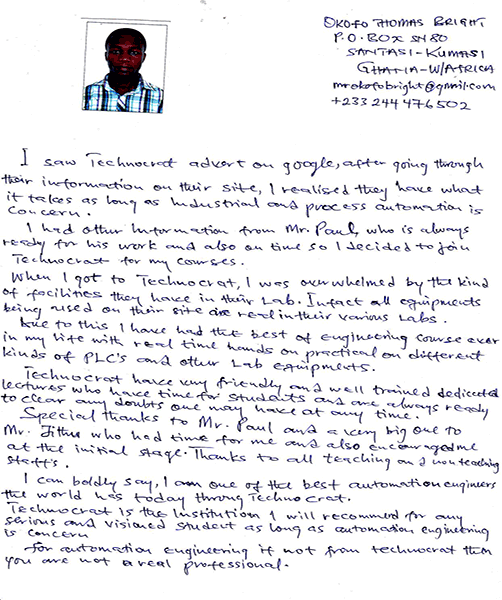 OKOFO THOMAS BRIGHT
P.O. BOX SN80
SANTASI-KUMASI
GHANA-W/AFRICA
mrokofobright@gmail.com
+233 244 476502
I saw Technocrat advert on google, after going through
their information on their site, I realised they have what
it takes as long as Industrial and process automation is
concern.
I had other Information from Mr. Paul, who is always
ready for his work and also on time so I decided to join
Technocrat for my courses.
When I got to Technocrat, I was overwhelmed by the kind
of facilities they have in their Lab. Infact all equipments
being used on their site are real in their various Labs.
Due to this I have had the best of engineering course ever
in my life with real time hands on practical on different
kinds of PLC's and other Lab equipments.
Technocrat have very friendly and well trained dedicated
lectures who have time for students and are always ready
to clear any doubts one may have at any time.
Special thanks to Mr. Paul and a very big one to
Mr. Jithu who had time for me and also encouraged me
at the initial stage. Thanks to all teaching and non teaching
staffs.
I can boldly say, I am one of the best automation engineers
the world has today throug Technocrat.
Technocrat is the Institution I will recommed for any
serious and visioned student as long as automation engineering
is concern
For automation engineering if not from technocrat then
you are not a real professional.